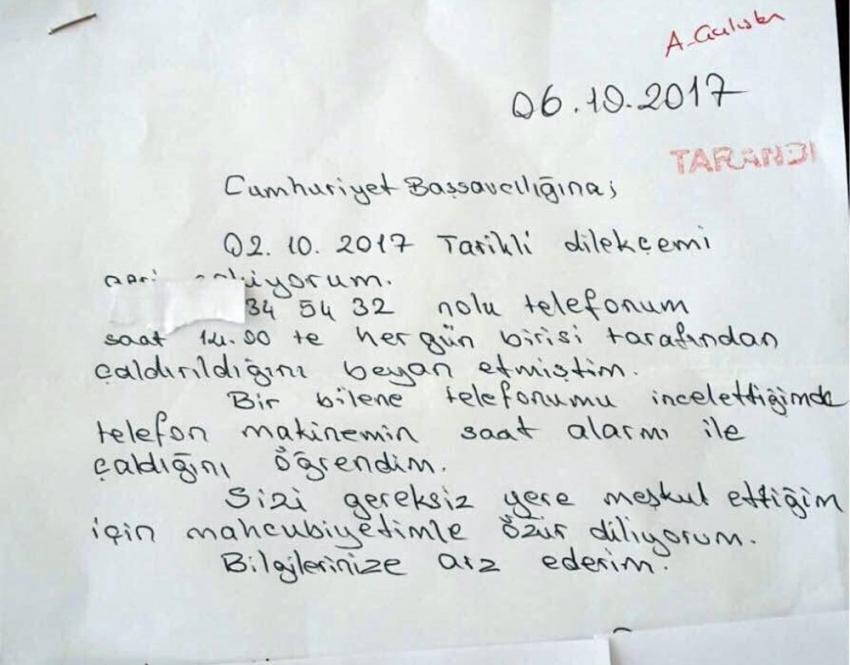 06.10.2017
TARANDI
Cumhuriyet Başsavcılığına;
02.10.2017 Tarikli dilekçemi
34 54 32 nolu telefonum
saat 14.00 te her gün birisi tarafından
çaldırıldığını beyan etmiştim.
Bir bilene telefonumu incelettiğimde
telefon makinemin saat alarmı ile
çaldığını öğrendim.
Sizi gereksiz yere meşkul ettiğim
için mahcubiyetimle özür diliyorum.
Bilgilerinize arz ederim.